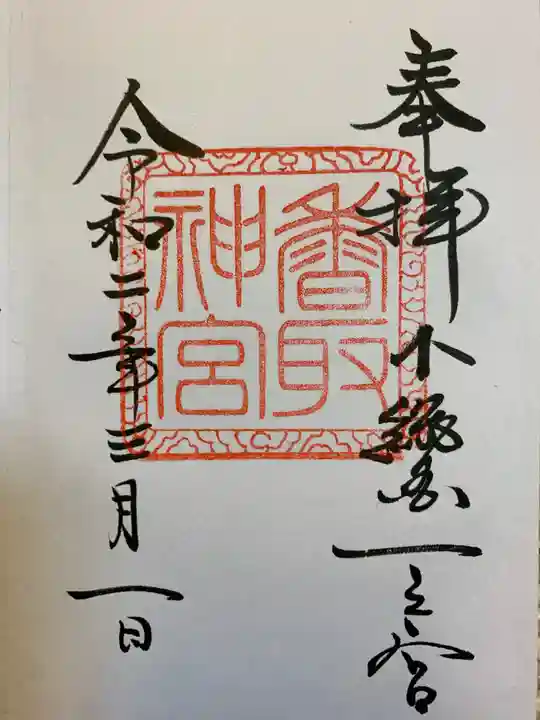 奉拝
下総国一之宮
香取
神宮
令和二年三月一日